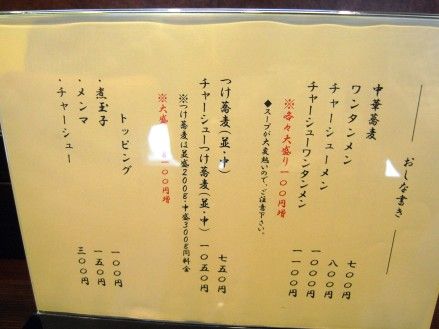 おしな書き
中華蕎麦 七〇〇円
ワンタンメン 八〇〇円
チャーシューメン 一〇〇〇円
チャーシューワンタンメン 一一〇〇円
※各々大盛り一〇〇円増
◆スープが大変熱いので、ご注意下さい。
つけ蕎麦(並・中) 七五〇円
チャーシューつけ蕎麦(並・中) 一〇五〇円
※つけ蕎麦は並盛200g・中盛300g同料金
※大盛 一〇〇円増
トッピング
・煮玉子 一〇〇円
・メンマ 一五〇円
・チャーシュー 三〇〇円